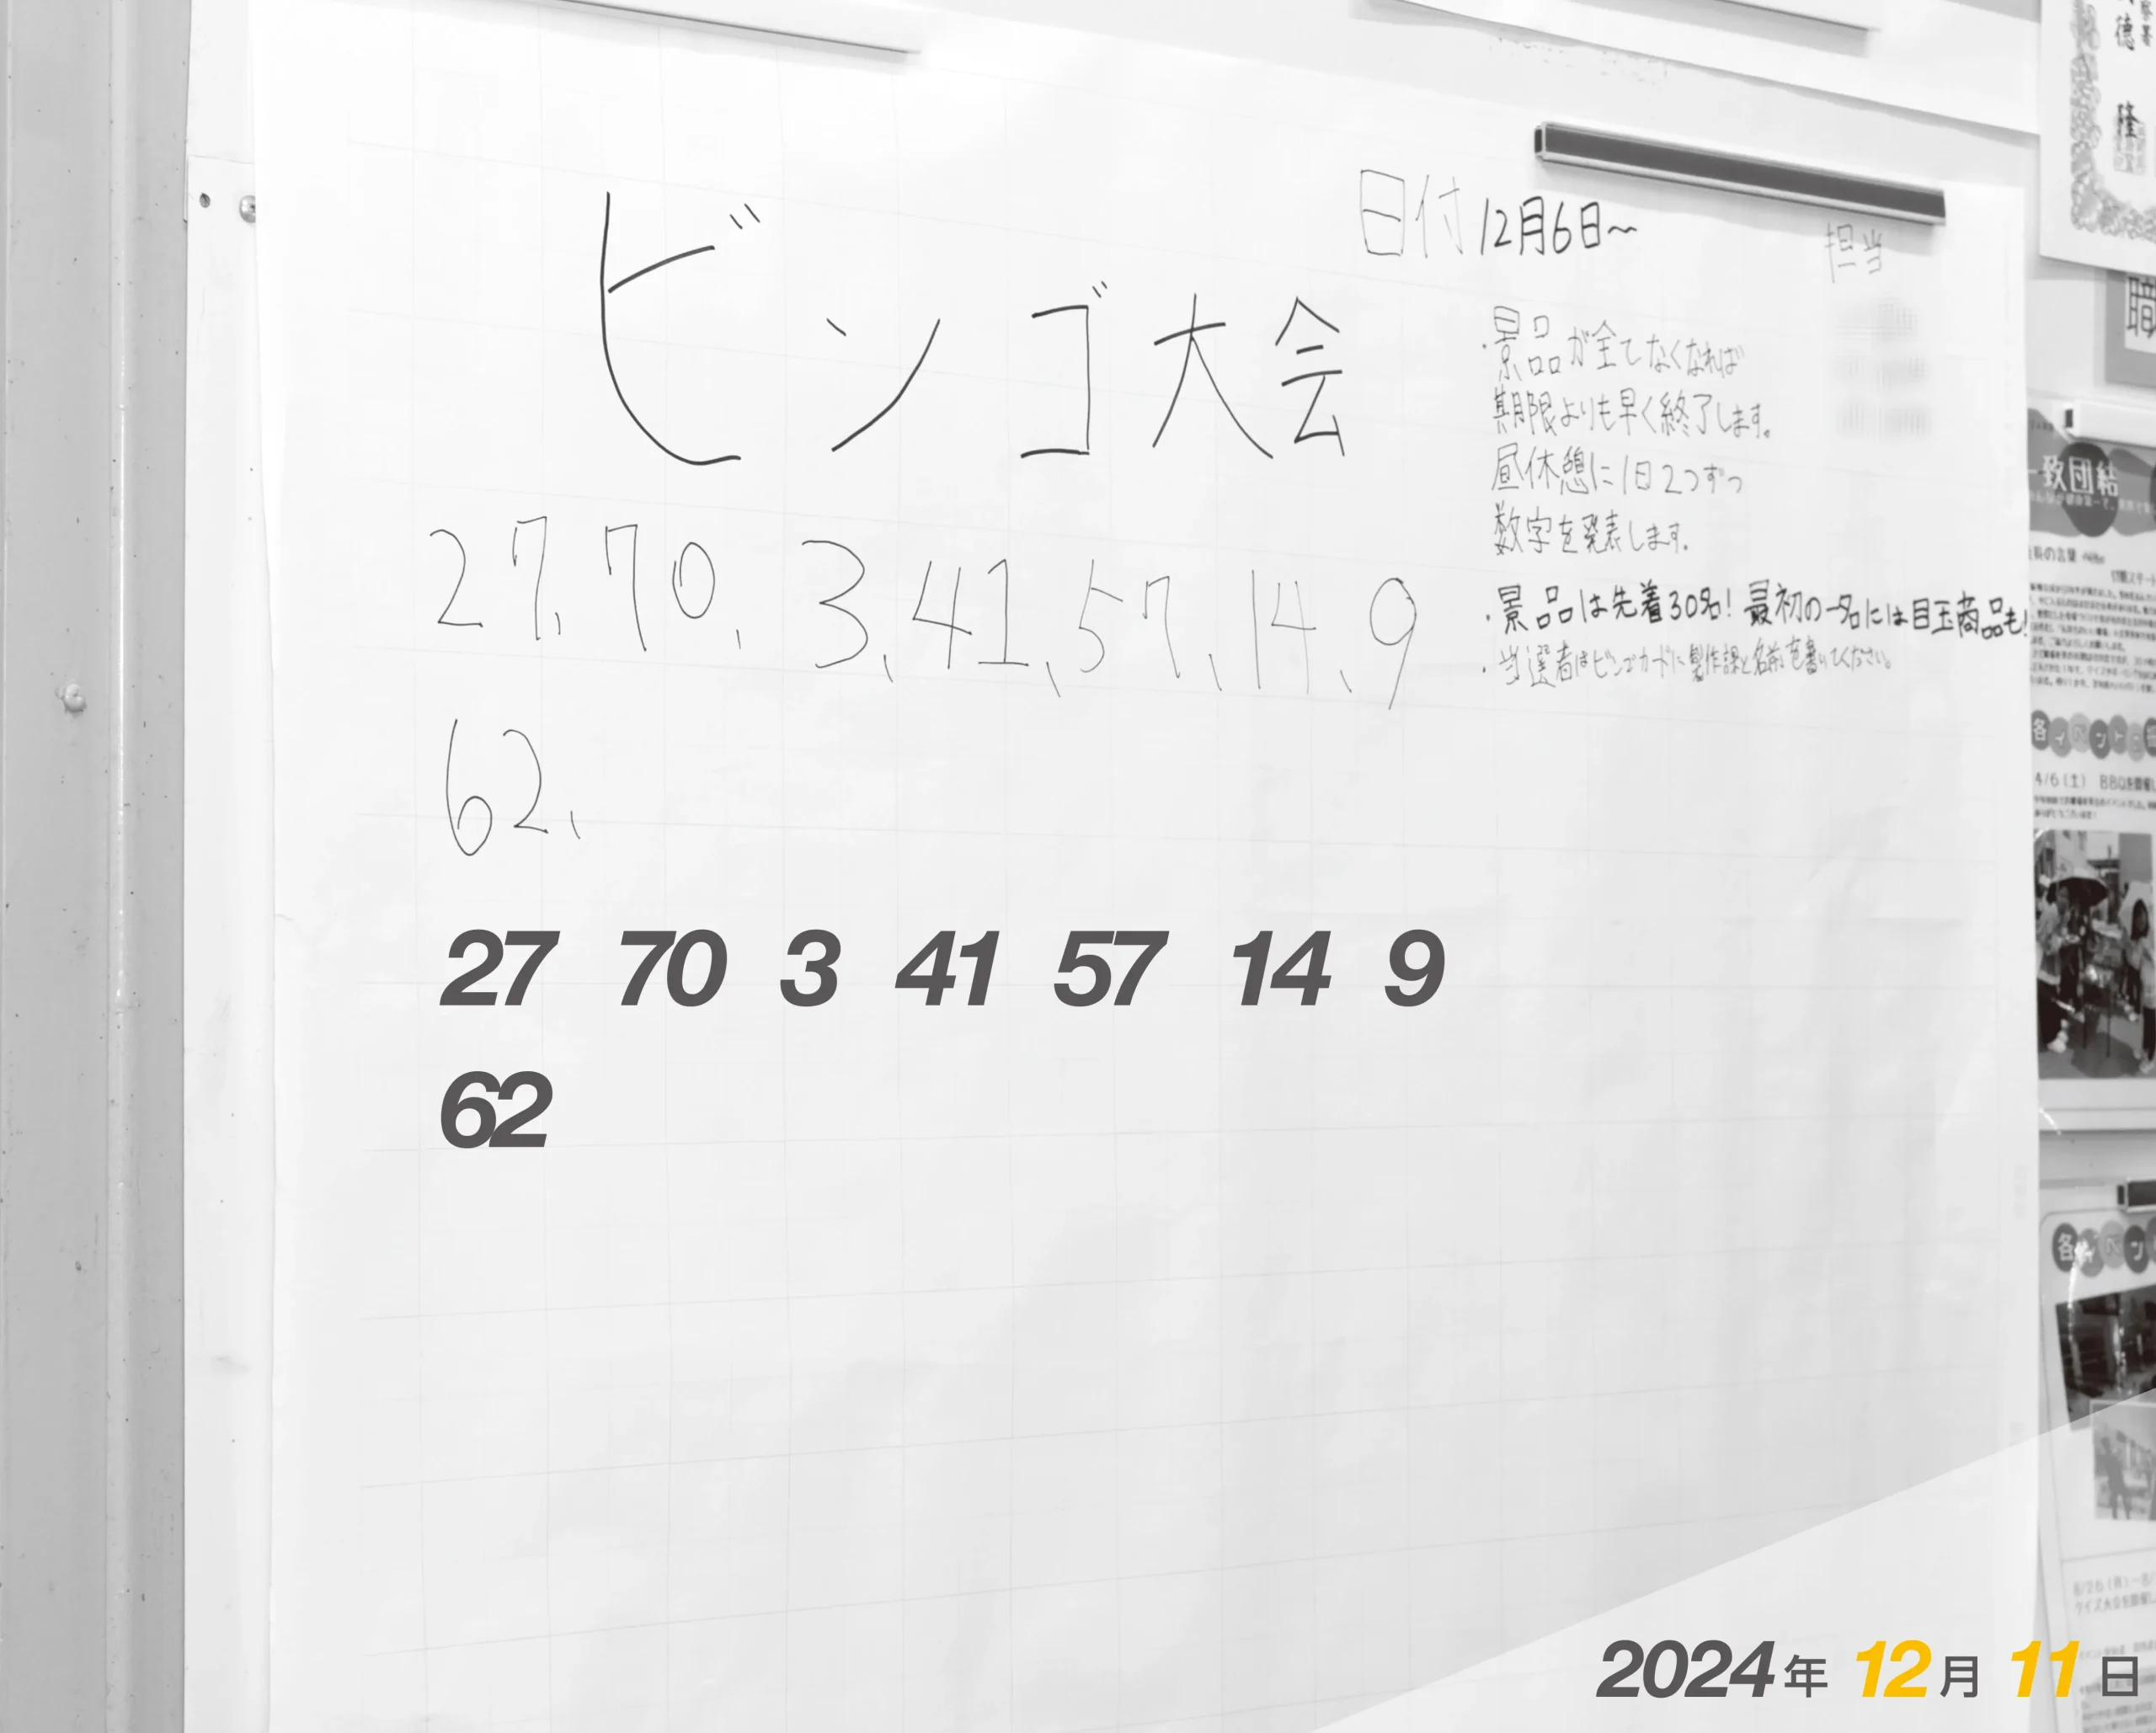 ビンゴ大会
日付 12月6日～
担当
・景品が全てなくなれば
期限よりも早く終了します。
昼休憩に1日2つずつ
数字を発表します。
・景品は先着30名！最初の一名には目玉商品も！
・当選者はビンゴカードに製作課と名前を書いてください。
27、70、3、41、57、14、9
62、
27 70 3 41 57 14 9
62
2024年 12月 11日
徳
隆
職
一致団結
4/6(土)